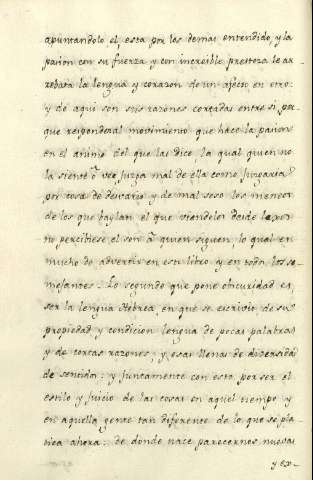 apuntandolo el, esta por las demas entendido, y la
pasion con su fuerza y con increible presteza le ar
rebata la lengua y corazon de un afecto en otro:
y de aqui son sus razones cortadas entre si por
que responden al movimiento que hace la pasion
en el animo del que las dice la qual quien no
la siente ô vee juzga mal de ella como juzgaria
por cosa de desvario y de mal seso los meneos
de los que baylan el que viendolos desde lexos
no percibiese el son â quien siguen, lo qual en
mucho de advertir en este libro y en todos los se-
mejantes: Lo segundo que pone obscuridad es
ser la lengua Hebrea en que se escrivio de su
propiedad y condicion lengua de pocas palabras
y de cortas razones, y esas llenas de diversidad
de sentidos: y juntamente con esto por ser el
estilo y juicio de las cosas en aquel tiempo y
en aquella gente tan diferente de lo que se pla
tica ahora: de donde nace parecernos nuevas
y ex-